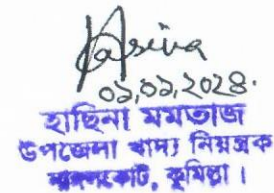 Hasina
০১,০১,২০২৪.
হাছিনা মমতাজ
উপজেলা খাদ্য নিয়ন্ত্রক
কুমিল্লা।